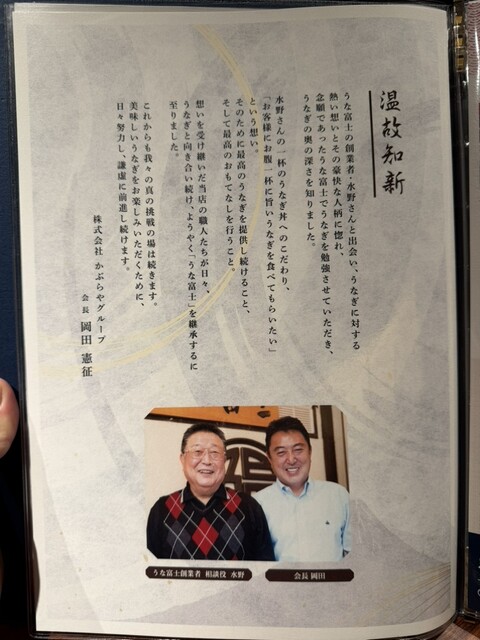 温故知新
うな富士の創業者・水野さんと出会い、うなぎに対する
熱い想いとその豪快な人柄に惚れ、
念願であったうな富士でうなぎを勉強させていただき、
うなぎの奥の深さを知りました。
水野さんの一杯のうなぎ丼へのこだわり、
「お客様にお腹一杯に旨いうなぎを食べてもらいたい」
という想い。
そのために最高のうなぎを提供し続けること、
そして最高のおもてなしを行うこと。
想いを受け継いだ当店の職人たちが日々、
うなぎと向き合い続け、ようやく「うな富士」を継承するに
至りました。
これからも我々の真の挑戦の場は続きます。
美味しいうなぎをお楽しみいただくために、
日々努力し、謙虚に前進し続けます。
株式会社 かぶらやグループ
会長 岡田 憲征
うな富士創業者 相談役 水野
会長 岡田